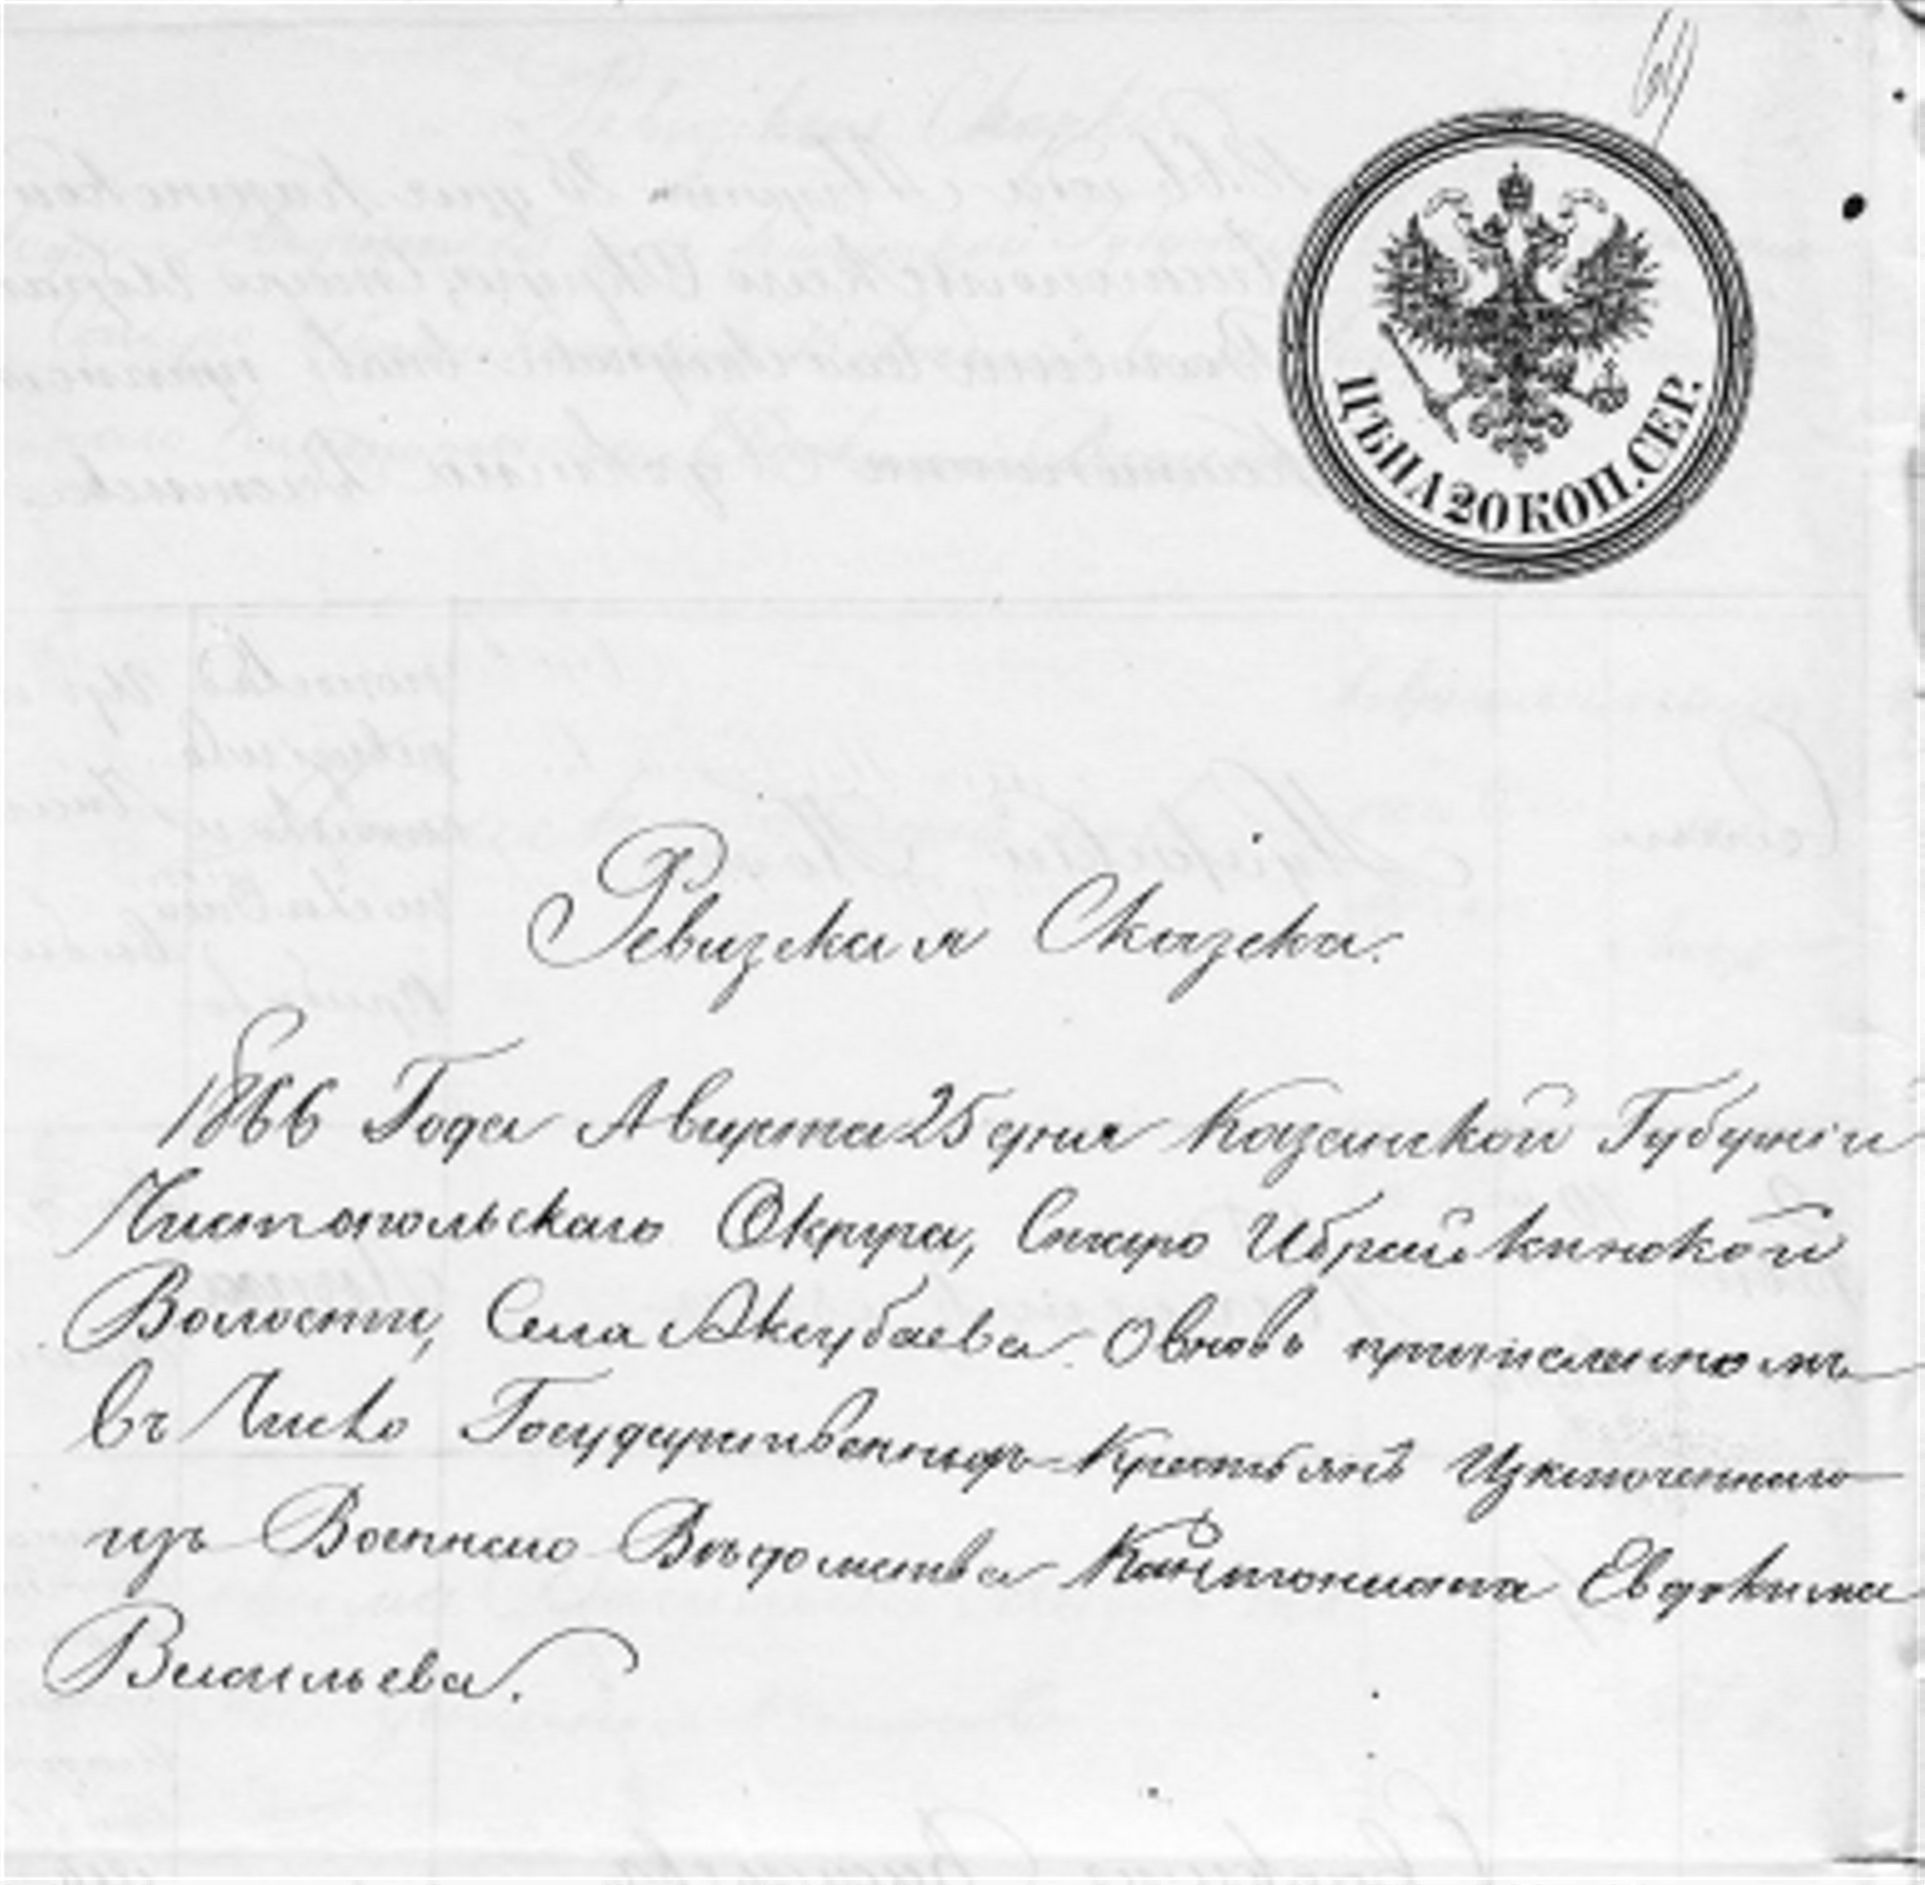 ЦѢНА 20 КОП. СЕР.
Ревизкая Сказка.
1866 Года Августа 25 дня Казанской Губерніи
Чистопольскаго Округа, Старо Ибрайкинской
Волости, Села Аксубаева. О вновь причисленномъ
въ Число Государственныхъ Крестьянъ Изключеннаго
изъ Военнаго Вѣдомства Кантониста Евдокима
Васильева.